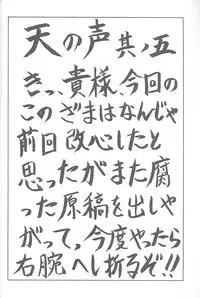 天の声其ノ五
きっ、貴様、今回の
この ざまはなんじゃ
前回 改心したと
思ったがまた腐
った原稿を出しや
がって。今度やったら
右腕へし折るぞ!!